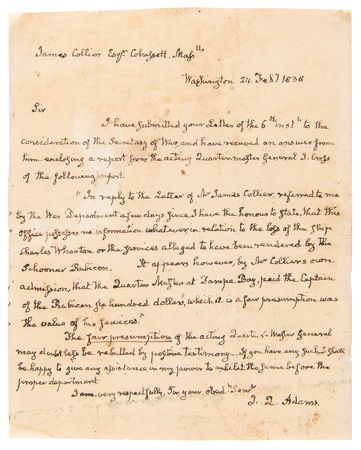 James Collier Esqr. Cohassett, Mass.tts
Washington 24. Feby 1838
Sir
I have submitted your Letter of the 6th inst.t to the
consideration of the Secretary of War, and have received an answer from
him enclosing a report from the acting Quartermaster General T. Cross
of the following import.
"In reply to the Letter of Mr James Collier, referred to me
by the War Department a few days since, I have the honour to state, that this
office possesses no information whatever in relation to the loss of the ship
Charles Wharton or the services alleged to have been rendered by the
Schooner Rubicon. It appears however, by Mr Collier's own
admission, that the Quarter Master at Tampa Bay, paid the Captain
of the Rubicon six hundred dollars, which it is a fair presumption was
the value of his services."
The fair presumption of the acting Quarter-Master General
may doubtless be rebutted by positive testimony—If you have any such, I shall
be happy to give any assistance in my power to exhibit the same before the
proper department
I am, very respectfully, Sir, your obedt Servt
J. Q. Adams.